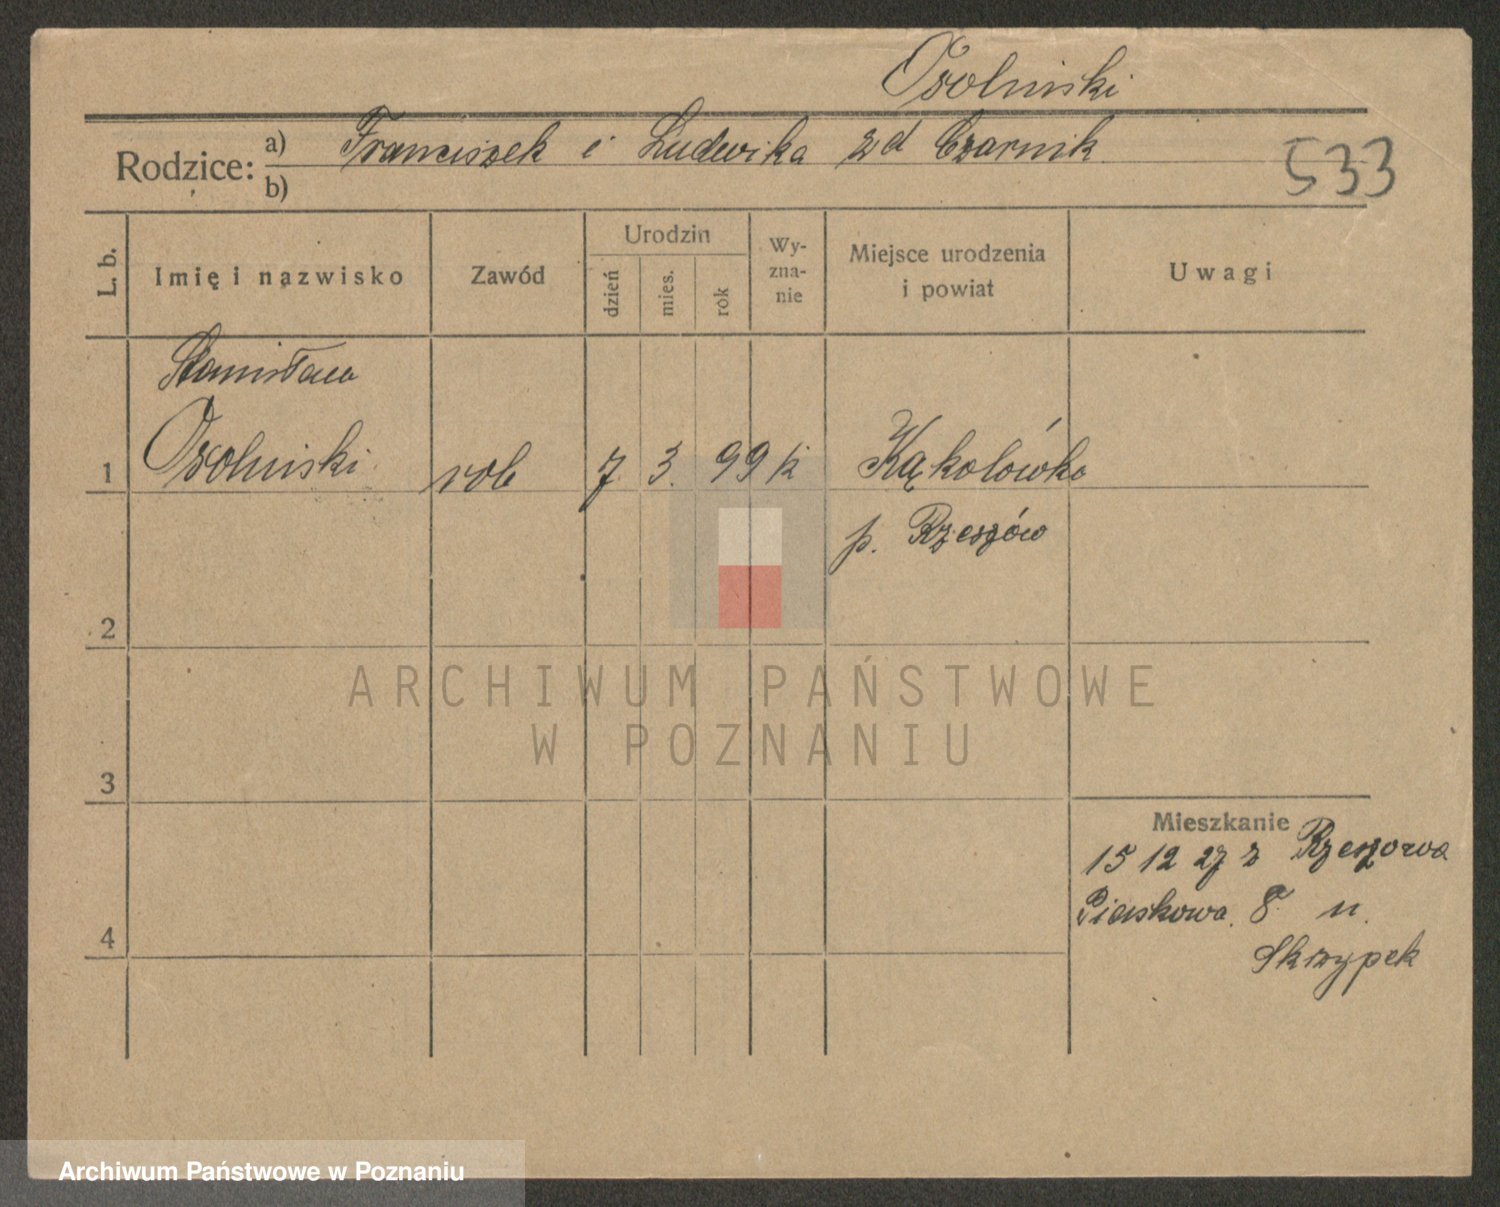 Osolinski
Rodzice: a) Franciszek i Ludwika zd Czarnik
b)
533
L. b.
Imię i nazwisko
Zawód
Urodzin
dzień
mies.
rok
Wy-
zna-
nie
Miejsce urodzenia
i powiat
Uwagi
Stanisław
1 Osolinski rob 7. 3. 99 k Kąkolówka
p. Rzeszów
2
3
4
Mieszkanie
15 12 27 z Rzeszowa
Piaskowa. 8 u.
Skrzypek
ARCHIWUM PAŃSTWOWE
W POZNANIU
Archiwum Państwowe w Poznaniu